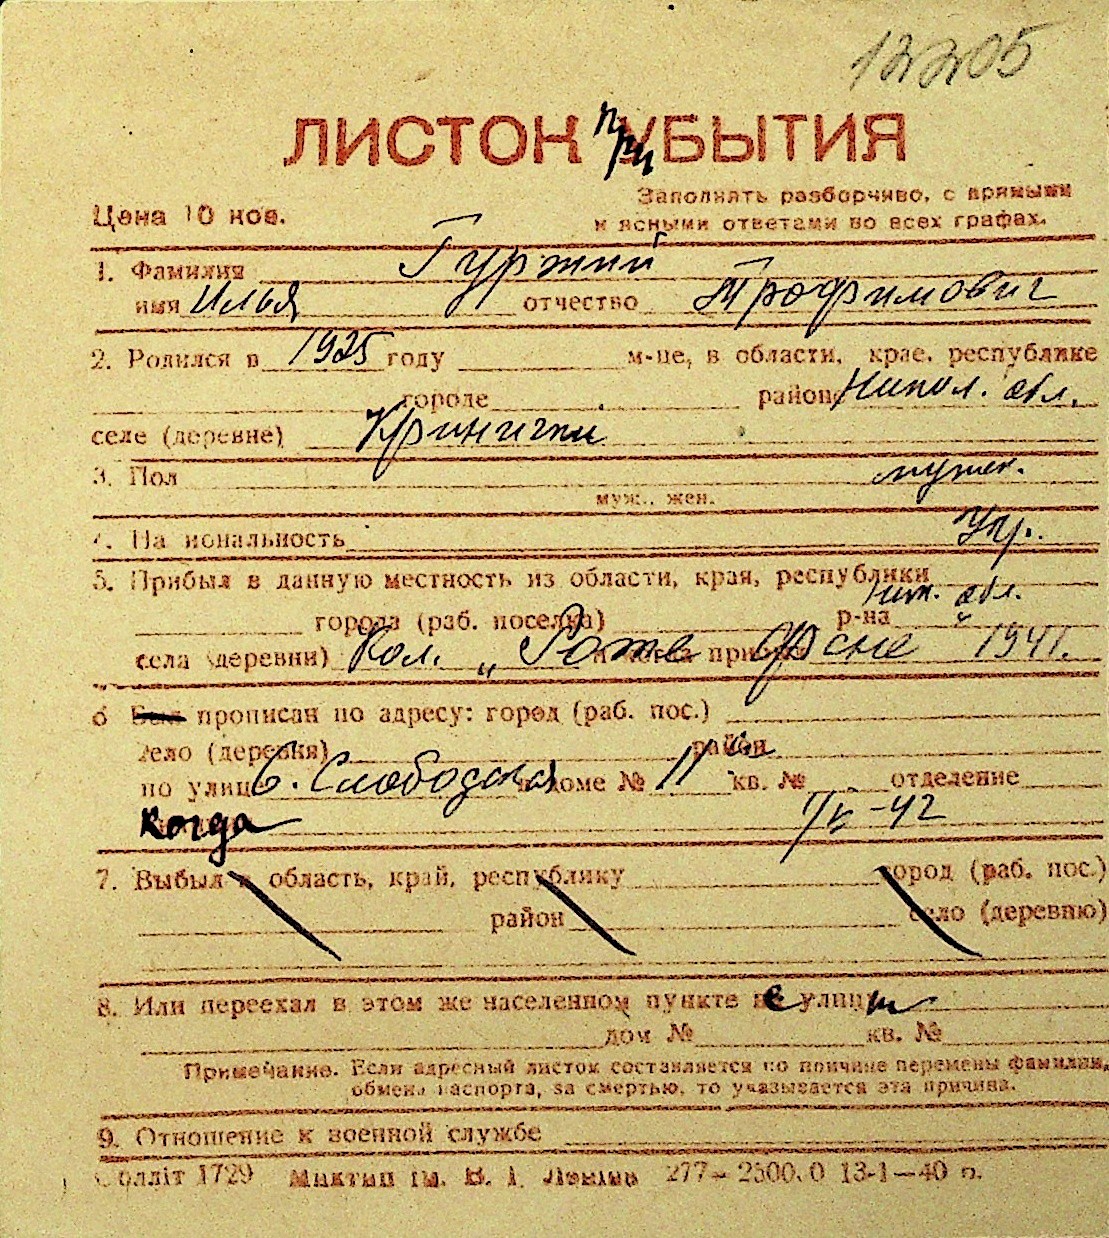 12205
ЛИСТОК при УБЫТИЯ
Цена 10 коп.
Заполнять разборчиво, с прямыми
и ясными ответами во всех графах.
1. Фамилия Гуржий
имя Илья отчество Трофимович
2. Родился в 1925 году м-це, в области, крае, республике
городе районе Никол. обл.
селе (деревне) Кринички
3. Пол мужск.
муж., жен.
4. На иональность Укр.
5. Прибыл в данную местность из области, края, республики
города (раб. поселка) р-на Ник. обл.
села (деревни) Кол. „ Роте Фане 1941.
6 Был прописан по адресу: город (раб. пос.)
село (деревня) район
по улице Б. Слободская доме № 11 кв. № отделение
Когда IV-42
7. Выбыл в область, край, республику город (раб. пос.)
район село (деревню)
8. Или переехал в этом же населенном пункте не улицы
дом № кв. №
Примечание. Если адресный листок составляется по причине перемены фамилии,
обмена паспорта, за смертью, то указывается эта причина.
9. Отношение к военной службе
Облліт 1729 Миктип ім. В. І. Леніна 277— 2500.0 13-1—40 п.